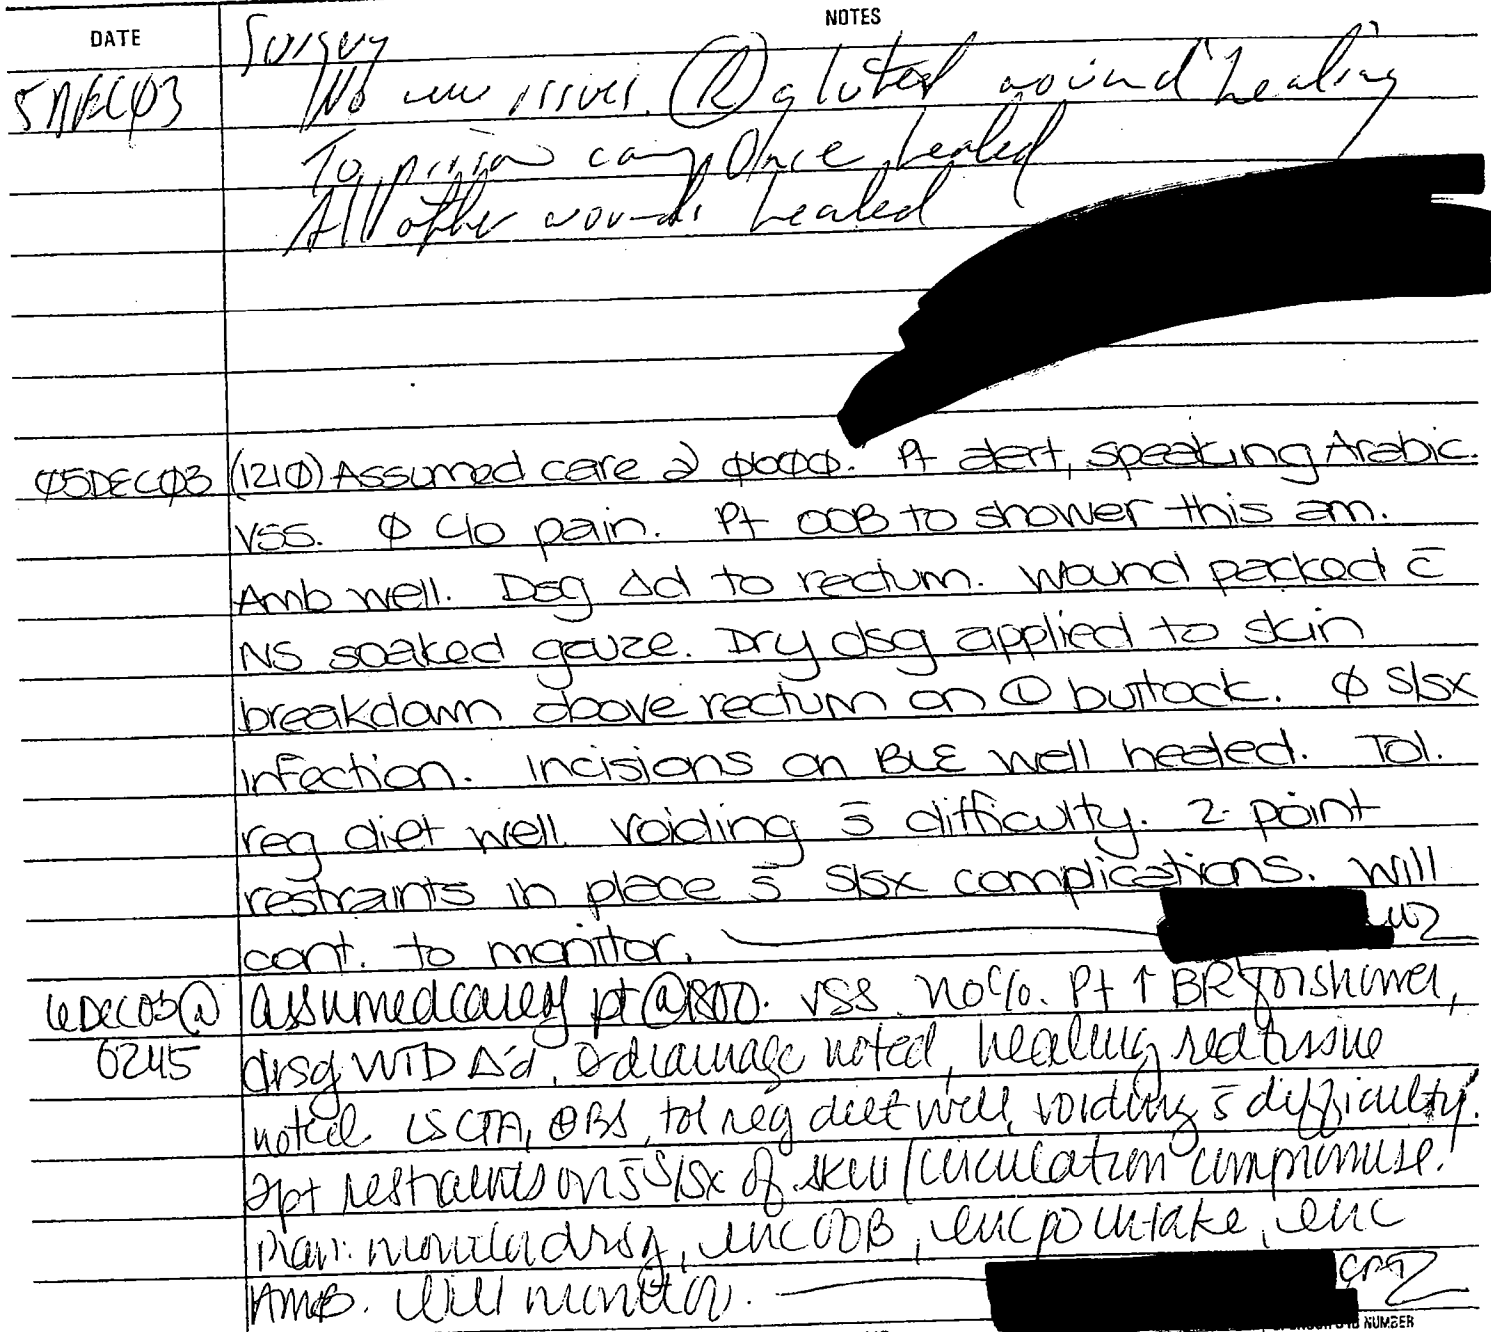 DATE
NOTES
Surgery
5DEC03 No new issues. (R) gluteal wound healing
To prison camp Once healed
All other wounds healed
05DEC03 (1210) Assumed care @ 0600. Pt alert, speaking Arabic.
VSS. Ø c/o pain. Pt OOB to shower this am.
Amb well. Dsg Δd to rectum. Wound packed c̄
NS soaked gauze. Dry dsg applied to skin
breakdown above rectum on (L) buttock. Ø s/sx
infection. Incisions on BLE well healed. Tol.
reg diet well. Voiding s̄ difficulty. 2-point
restraints in place s̄ s/sx complications. Will
cont. to monitor.
6DEC03 @ assumed care of pt @ 1800. VSS. no c/o. Pt ↑ BR for shower,
0245 drsg WTD Δ'd, Ø drainage noted, healing red tissue
noted. LSCTA, ⊕BS, tol reg diet well, voiding s̄ difficulty.
2pt restraints on s̄ s/sx of skin/circulation compromise.
Plan: monitor drsg, enc OOB, enc po intake, enc
Amb. Will monitor.
NUMBER